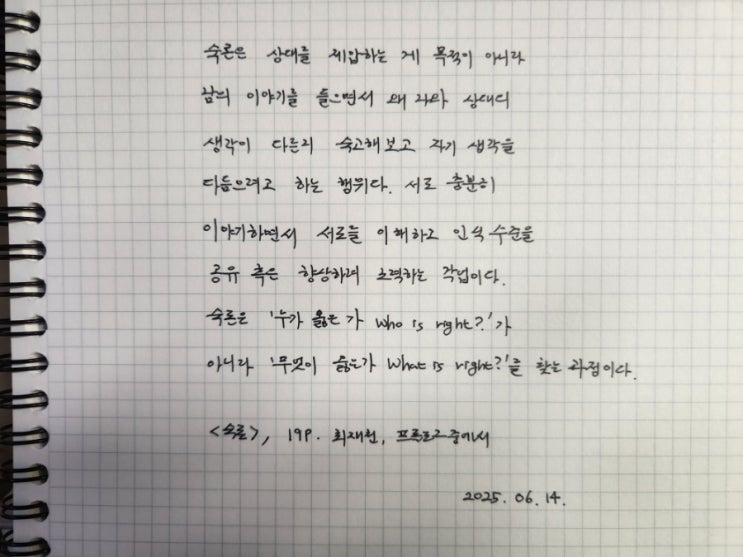 숙론은 상대를 제압하는 게 목적이 아니라
남의 이야기를 들으면서 왜 나와 상대의
생각이 다른지 숙고해보고 자기 생각을
다듬으려고 하는 행위다. 서로 충분히
이야기하면서 서로를 이해하고 인식 수준을
공유 혹은 향상하려 노력하는 작업이다.
숙론은 '누가 옳은가 Who is right?'가
아니라 '무엇이 옳은가 What is right?'를 찾는 과정이다.
<숙론>, 19P. 최재천, 프롤로그 중에서
2025. 06. 14.